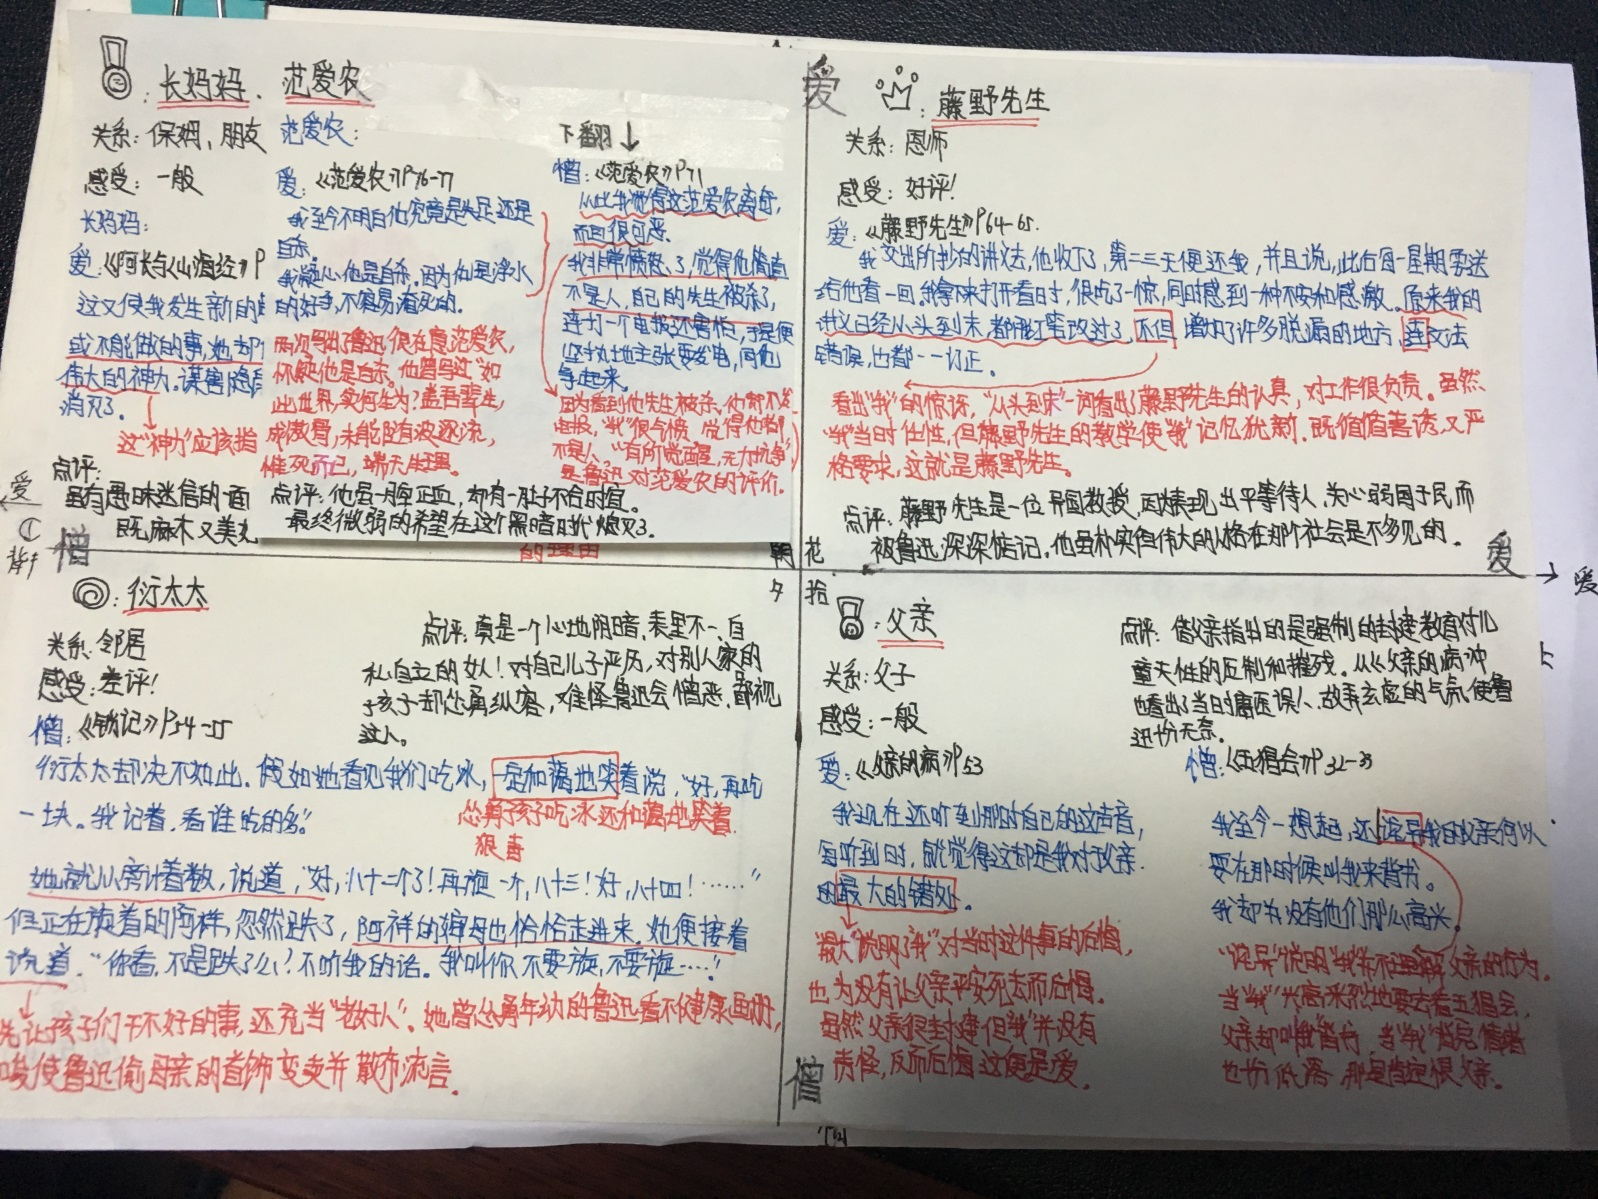 长妈妈、范爱农
关系：保姆、朋友
感受：一般
长妈妈：
爱：《阿长与《山海经》》P
这又使我发生新的
或不能做的事，她却
伟大的神力。谋害隐
消灭了。
这“神力”应该指
点评：
虽有愚昧迷信的一面
既麻木又美
范爱农：
爱：《范爱农》P76-77
我至今不明白他究竟是失足还是
自杀。
我疑心他是自杀。因为他是浮水
的好手，不容易淹死的。
两次写出了鲁迅很在意范爱农，
怀疑他是自杀。他曾写过“如
此世界，实何生为？盖吾辈生
成傲骨，未能随波逐流，
惟死而已，端无生理。
点评：他虽一脾正血，却有一肚子不合时宜。
最终微弱的希望在这个黑暗时代熄灭了。
下翻↓
憎：《范爱农》P71
从此我觉得这范爱农离奇，
而且很可恶。
我非常愤怒了，觉得他简直
不是人，自己的先生被杀了，
连打一个电报还害怕，于是便
坚执地主张要发电，同他
争起来。
因为看到他先生被杀，他都不发
电报，“我”很气愤，觉得他都
不是人。“有所觉醒，无力抗争”
是鲁迅对范爱农的评价。
的理由
爱
藤野先生
关系：恩师
感受：好评！
爱：《藤野先生》P64-65.
我交出所抄的讲义去，他收下了，第二三天便还我，并且说，此后每一星期要送
给他看一回。我拿下来打开看时，很吃了一惊，同时感到一种不安和感激。原来我的
讲义已经从头到末，都用红笔改过了，不但增加了许多脱漏的地方，连文法
错误，也都一一订正。
看出“我”的惊讶，“从头到末”一词看出了藤野先生的认真，对工作很负责。虽然
“我”当时任性，但藤野先生的教学使“我”记忆犹新。既循循善诱又严
格要求，这就是藤野先生。
点评：藤野先生是一位异国教授，因为表现出平等待人，关心弱国子民而
被鲁迅深深惦记，他虽朴实但伟大的人格在那个社会是不多见的。
爱
憎
朝花
夕拾
爱
爱
衍太太
关系：邻居
感受：差评！
憎：《琐记》P54-55
点评：真是一个心地阴暗、表里不一、自
私自立的女人！对自己儿子严厉，对别人家的
孩子却怂勇纵容，难怪鲁迅会憎恶、鄙视
这人。
“衍太太却决不如此。假如她看见我们吃冰，一定和蔼地笑着说，“好，再吃
一块。我记着，看谁吃的多。”
怂勇孩子吃冰还和蔼地笑着
狠毒
她就从旁计着数，说道，“好，八十二个了！再旋一个，八十三！好，八十四！……”
但正在旋着的阿祥，忽然跌了，阿祥的婶母也恰恰走进来。她便接着
说道，“你看，不是跌了么？不听我的话。我叫你不要旋，不要旋……”
先让孩子们干不好的事，还充当“老好人”。她曾怂勇年幼的鲁迅看不健康画册，
唆使鲁迅偷母亲的首饰变卖并散布流言。
父亲
关系：父子
感受：一般
爱：《父亲的病》P53
我现在还听到那时自己的这声音，
每听到时，就觉得这却是我对父亲
的最大的错处。
“最大”说明了“我”对当时这件事的后悔，
也为没有让父亲平安死去而后悔。
虽然父亲很封建但“我”并没有
责怪，反而后悔，这便是爱。
点评：借父亲指出的是强制的封建教育对儿
童天性的压制和摧残。从《父亲的病》中
也看出了当日的庸医误人、故弄玄虚的气氛，使鲁
迅伤无奈。
憎：《五猖会》P32-33
我至今一想起，还诧异我的父亲何以
要在那时候叫我来背书。
我却并没有他们那么高兴。
“诧异”说明“我”并不理解父亲的行为。
当“我”兴高采烈地要去看五猖会，
父亲却叫“我”背书，当“我”背完情绪
也伤低落，那是肯定恨父亲。
憎